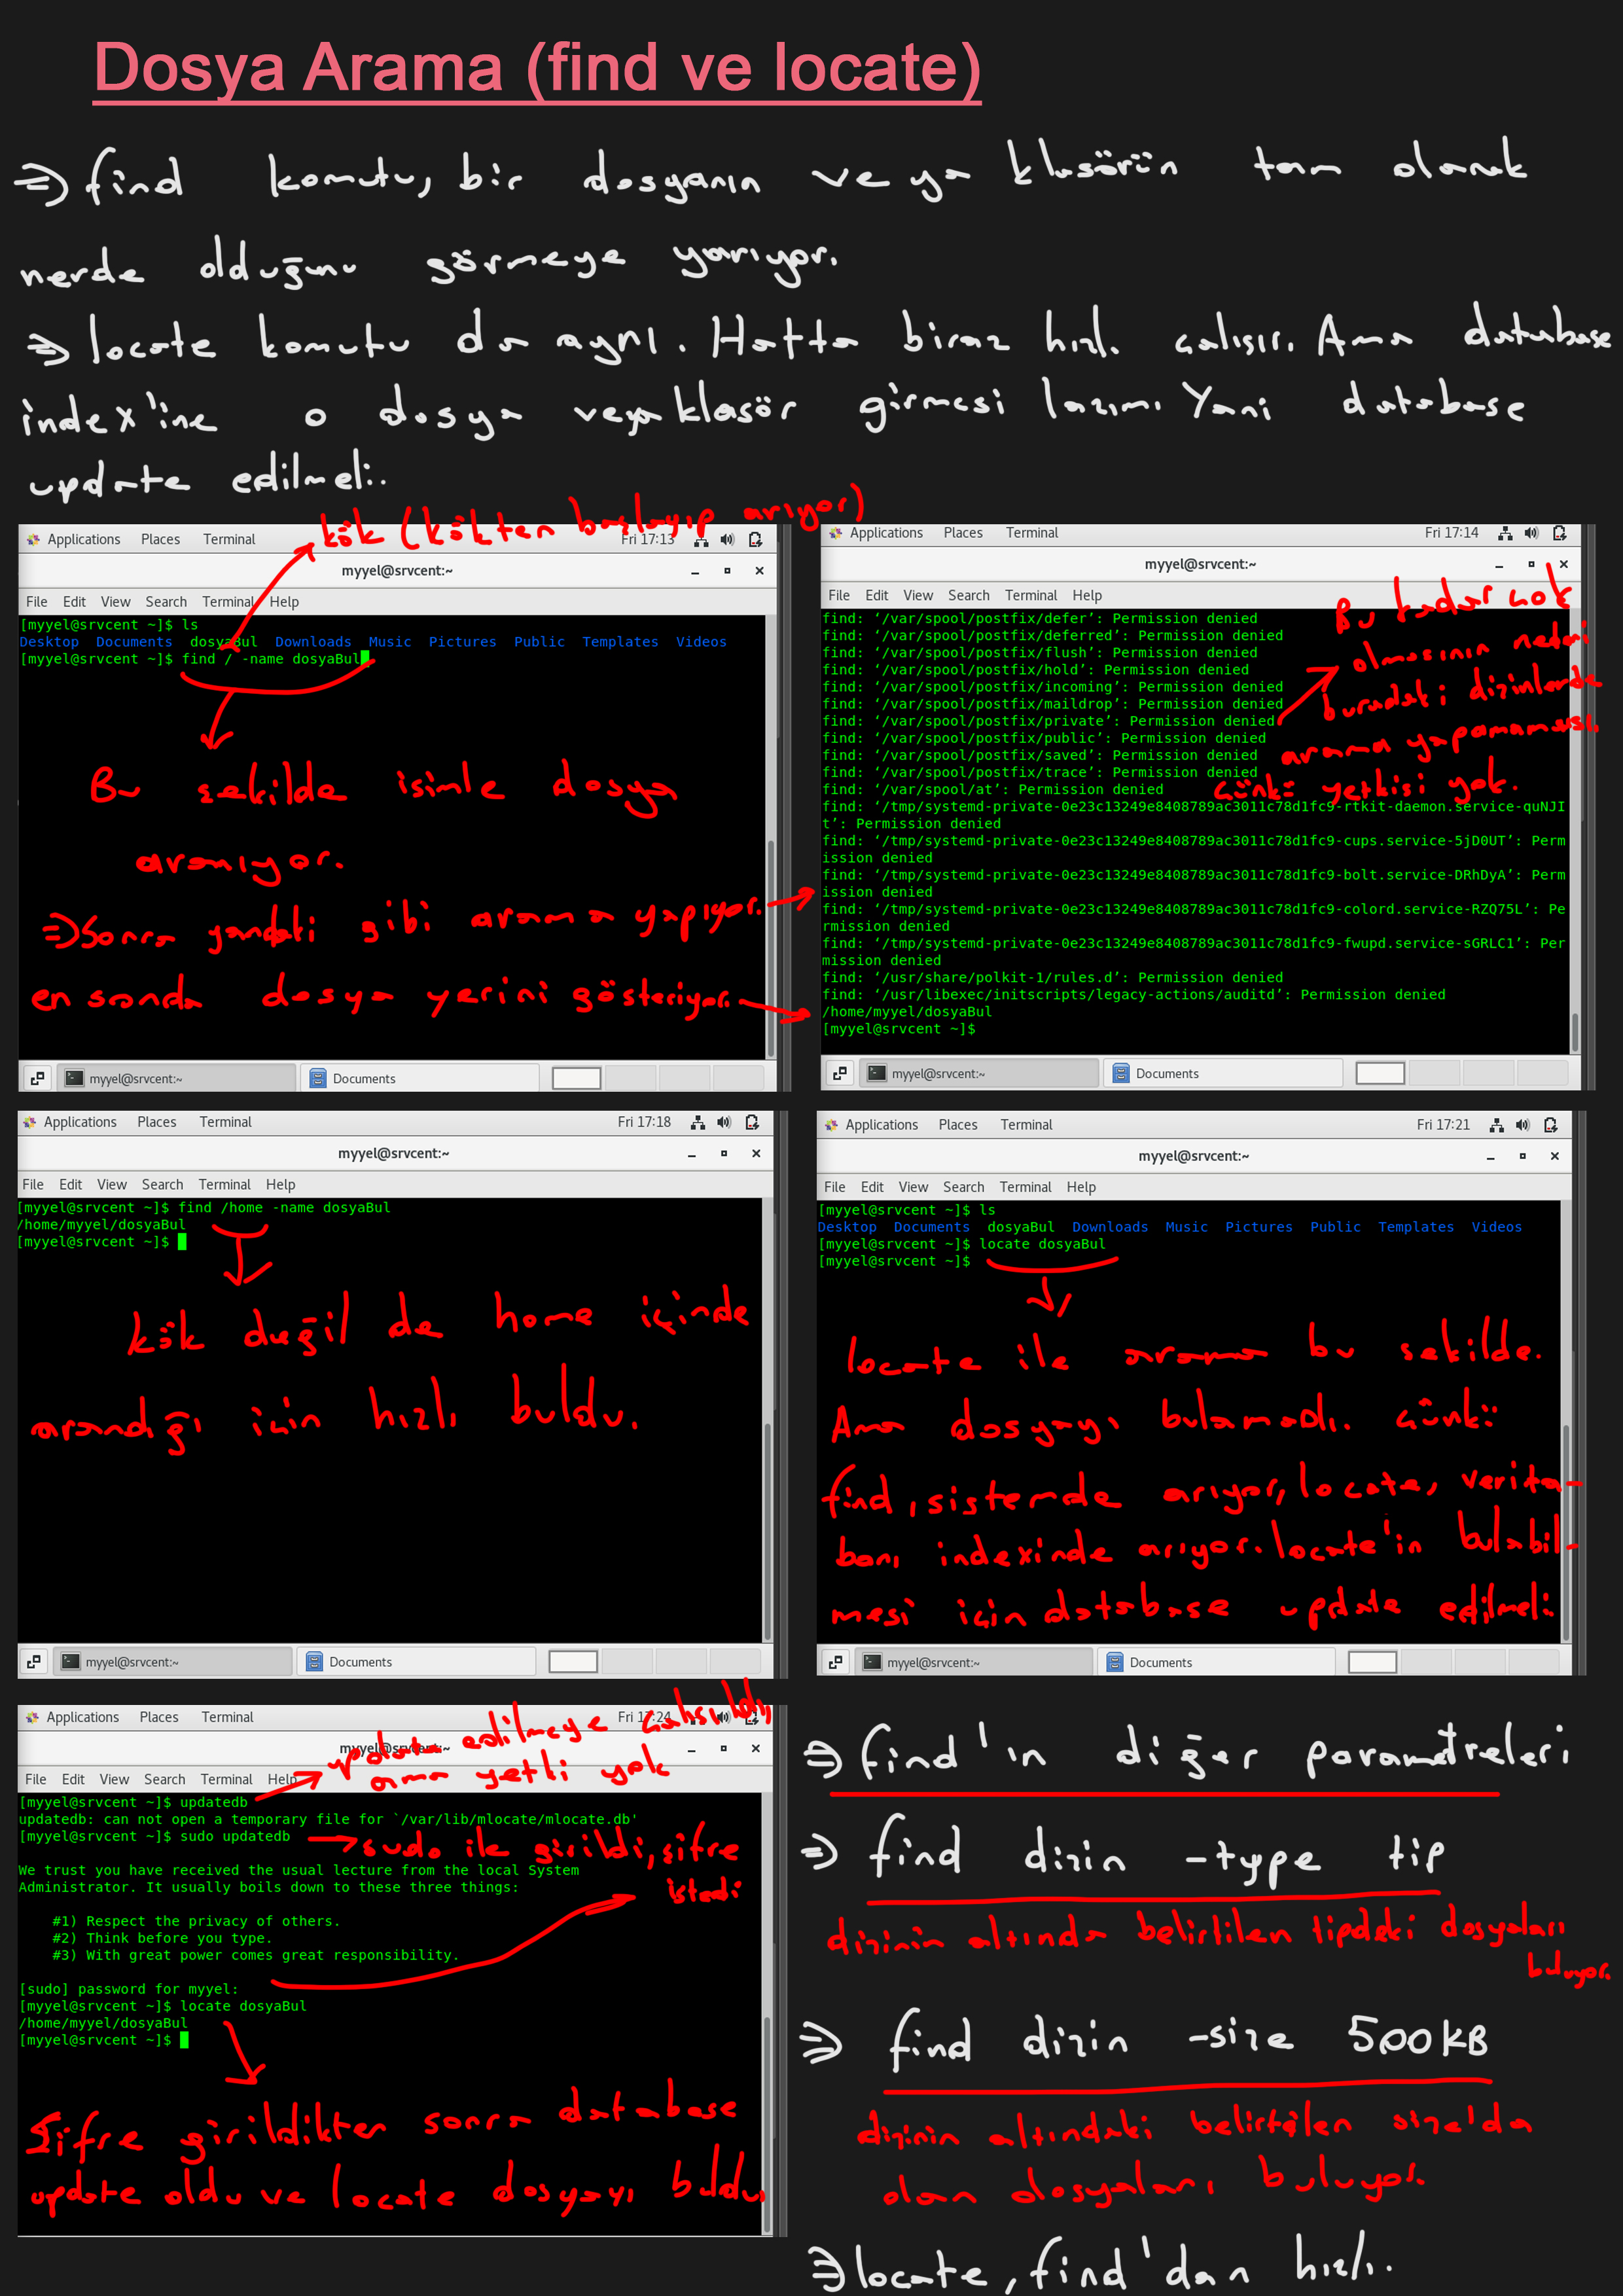 Dosya Arama (find ve locate)
⇒ find komutu, bir dosyanın veya klasörün tam olarak
nerde olduğunu görmeye yarıyor.
⇒ locate komutu da aynı. Hatta biraz hızlı çalışır. Ama database
index'ine o dosya veya klasör girmesi lazım. Yani database
update edilmeli.
kök (kökten başlayıp arıyor)
Applications Places Terminal Fri 17:13
myyel@srvcent:~
File Edit View Search Terminal Help
[myyel@srvcent ~]$ ls
Desktop Documents dosyaBul Downloads Music Pictures Public Templates Videos
[myyel@srvcent ~]$ find / -name dosyaBul
Bu şekilde isimle dosya
aranıyor.
⇒ Sonra yandaki gibi arama yapıyor.
en sonda dosya yerini gösteriyor.
myyel@srvcent:~ Documents
Applications Places Terminal Fri 17:14
myyel@srvcent:~
File Edit View Search Terminal Help
find: ‘/var/spool/postfix/defer’: Permission denied
find: ‘/var/spool/postfix/deferred’: Permission denied
find: ‘/var/spool/postfix/flush’: Permission denied
find: ‘/var/spool/postfix/hold’: Permission denied
find: ‘/var/spool/postfix/incoming’: Permission denied
find: ‘/var/spool/postfix/maildrop’: Permission denied
find: ‘/var/spool/postfix/private’: Permission denied
find: ‘/var/spool/postfix/public’: Permission denied
find: ‘/var/spool/postfix/saved’: Permission denied
find: ‘/var/spool/postfix/trace’: Permission denied
find: ‘/var/spool/at’: Permission denied
find: ‘/tmp/systemd-private-0e23c13249e8408789ac3011c78d1fc9-rtkit-daemon.service-quNJI
t’: Permission denied
find: ‘/tmp/systemd-private-0e23c13249e8408789ac3011c78d1fc9-cups.service-5jD0UT’: Perm
ission denied
find: ‘/tmp/systemd-private-0e23c13249e8408789ac3011c78d1fc9-bolt.service-DRhDyA’: Perm
ission denied
find: ‘/tmp/systemd-private-0e23c13249e8408789ac3011c78d1fc9-colord.service-RZQ75L’: Pe
rmission denied
find: ‘/tmp/systemd-private-0e23c13249e8408789ac3011c78d1fc9-fwupd.service-sGRLC1’: Per
mission denied
find: ‘/usr/share/polkit-1/rules.d’: Permission denied
find: ‘/usr/libexec/initscripts/legacy-actions/auditd’: Permission denied
/home/myyel/dosyaBul
[myyel@srvcent ~]$
Bu kadar çok
olmasının nedeni
buradaki dizinlerde
arama yapamaması.
çünkü yetkisi yok.
myyel@srvcent:~ Documents
Applications Places Terminal Fri 17:18
myyel@srvcent:~
File Edit View Search Terminal Help
[myyel@srvcent ~]$ find /home -name dosyaBul
/home/myyel/dosyaBul
[myyel@srvcent ~]$
kök değil de home içinde
arandığı için hızlı buldu.
myyel@srvcent:~ Documents
Applications Places Terminal Fri 17:21
myyel@srvcent:~
File Edit View Search Terminal Help
[myyel@srvcent ~]$ ls
Desktop Documents dosyaBul Downloads Music Pictures Public Templates Videos
[myyel@srvcent ~]$ locate dosyaBul
[myyel@srvcent ~]$
locate ile arama bu şekilde.
Ama dosyayı bulamadı. Çünkü
find, sistemde arıyor, locate, verita-
banı indexinde arıyor. locate'in bulabil-
mesi için database update edilmeli
myyel@srvcent:~ Documents
Applications Places Terminal Fri 17:24
myyel@srvcent:~
File Edit View Search Terminal Help
update edilmeye çalışıldı,
ama yetki yok
[myyel@srvcent ~]$ updatedb
updatedb: can not open a temporary file for `/var/lib/mlocate/mlocate.db'
[myyel@srvcent ~]$ sudo updatedb
sudo ile girildi, şifre
istedi
We trust you have received the usual lecture from the local System
Administrator. It usually boils down to these three things:
#1) Respect the privacy of others.
#2) Think before you type.
#3) With great power comes great responsibility.
[sudo] password for myyel:
[myyel@srvcent ~]$ locate dosyaBul
/home/myyel/dosyaBul
[myyel@srvcent ~]$
Şifre girildikten sonra database
update oldu ve locate dosyayı buldu.
⇒ find'ın diğer parametreleri
⇒ find dizin -type tip
dizinin altında belirtilen tipdeki dosyaları
buluyor.
⇒ find dizin -size 500kB
dizinin altındaki belirtilen size'da
olan dosyaları buluyor.
⇒ locate, find'dan hızlı.